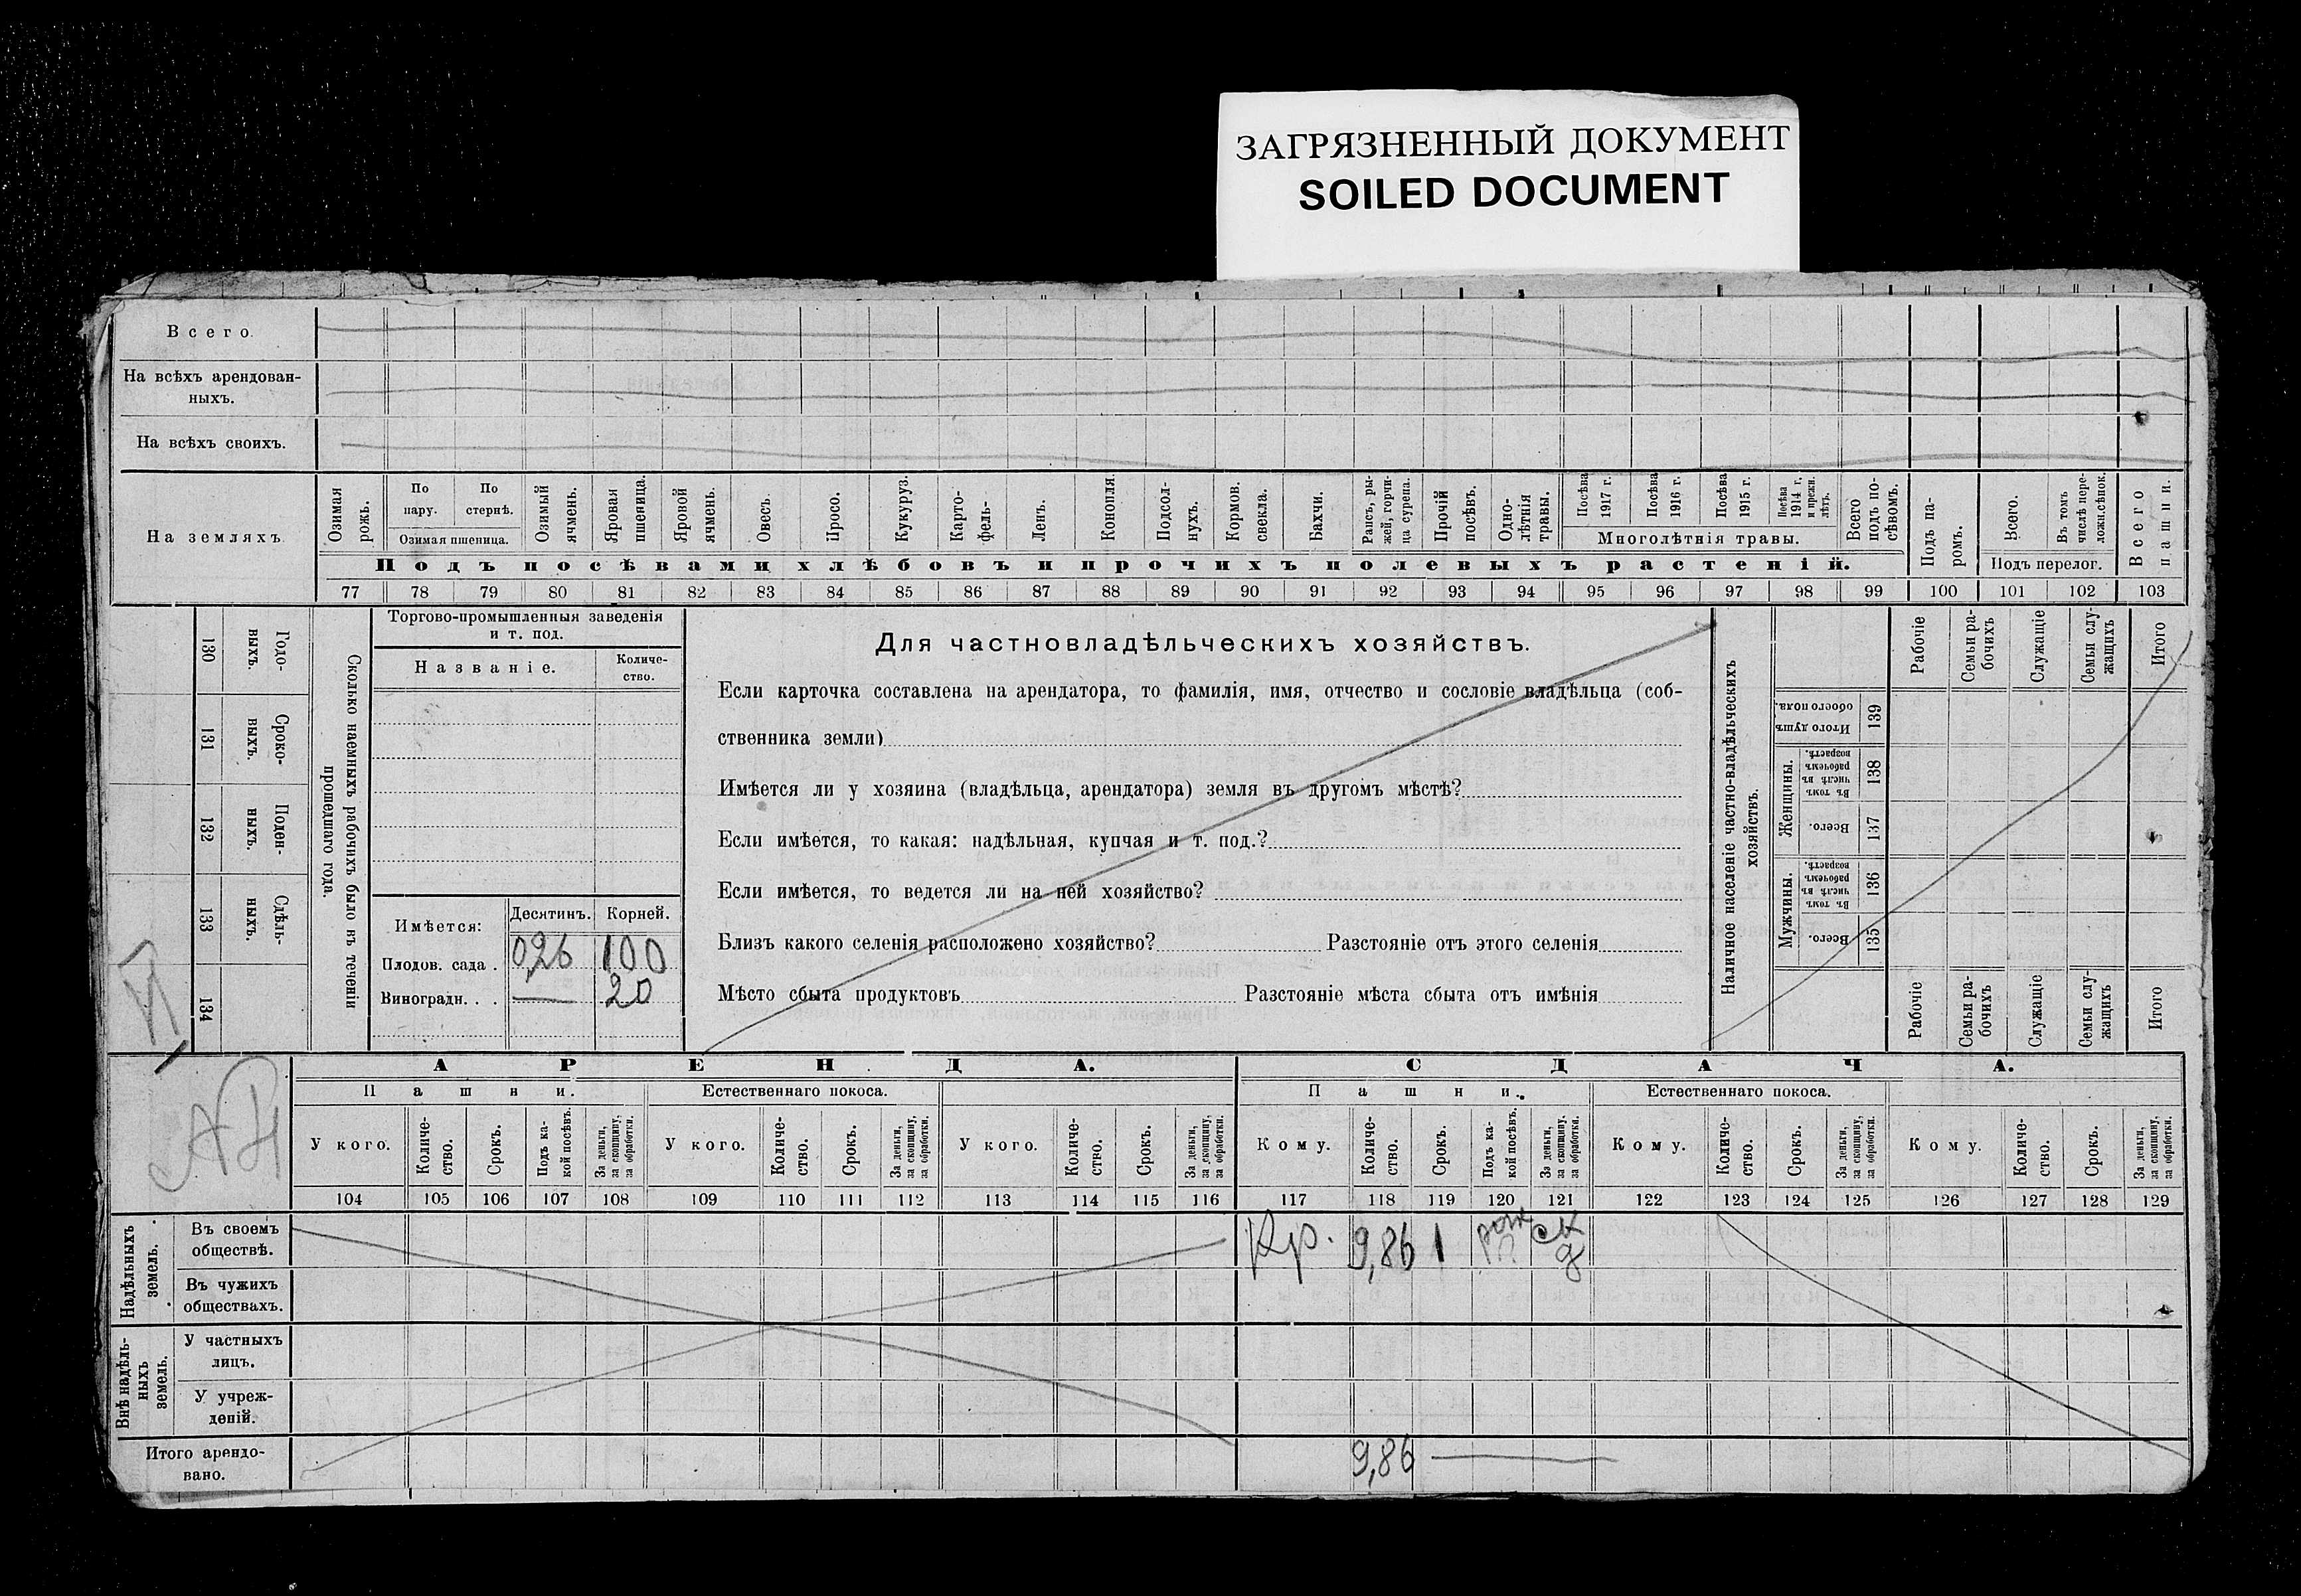 ЗАГРЯЗНЕННЫЙ ДОКУМЕНТ
SOILED DOCUMENT
Всего.
На всѣхъ арендован-
ныхъ.
На всѣхъ своихъ.
На земляхъ
Озимая рожь.
По пару.
По стернѣ.
Озимая пшеница.
Озимый ячмень.
Яровая пшеница.
Яровой ячмень.
Овесъ.
Просо.
Кукуруз.
Карто-
фель-
Ленъ.
Конопля.
Подсол-
нухъ.
Кормов. свекла.
Бахчи.
Рапсъ, ры-
жей, горчи-
ца сурепа.
Прочій посѣвъ.
Одно-
лѣтнія травы.
Посѣва 1917 г.
Посѣва 1916 г.
Посѣва 1915 г.
Посѣва 1914 г. и прежн. лѣтъ.
Многолѣтнія травы.
Всего подъ по-
сѣвомъ.
Подъ па-
ромъ.
Всего.
Въ томъ числѣ пере-
ложн.сѣнок.
Подъ перелог.
Всего пашни.
Подъ посѣвами хлѣбовъ и прочихъ полевыхъ растеній.
77 78 79 80 81 82 83 84 85 86 87 88 89 90 91 92 93 94 95 96 97 98 99 100 101 102 103
130 Годо-
выхъ.
131 Сроко-
выхъ.
132 Поден-
ныхъ.
133 Сдѣль-
ныхъ.
134
Сколько наемныхъ рабочихъ было въ теченіи
прошедшаго года.
Торгово-промышленныя заведенія
и т. под.
Названіе.
Количе-
ство.
Имѣется:
Десятинъ.
Корней.
Плодов. сада . 0,26 100
Виноградн. . . — 20
Для частновладѣльческихъ хозяйствъ.
Если карточка составлена на арендатора, то фамилія, имя, отчество и сословіе владѣльца (соб-
ственника земли)
Имѣется ли у хозяина (владѣльца, арендатора) земля въ другомъ мѣстѣ?
Если имѣется, то какая: надѣльная, купчая и т. под.?
Если имѣется, то ведется ли на ней хозяйство?
Близъ какого селенія расположено хозяйство? Разстояніе отъ этого селенія
Мѣсто сбыта продуктовъ Разстояніе мѣста сбыта отъ имѣнія
Наличное населеніе частно-владѣльческихъ
хозяйствъ.
Рабочіе
Семьи ра-
бочихъ
Служащіе
Семьи слу-
жащихъ
Итого
Итого душъ обоего пола. 139
Женщины.
Въ томъ числѣ въ рабочемъ возрастѣ. 138
Всего. 137
Мужчины.
Въ томъ числѣ въ рабочемъ возрастѣ. 136
Всего. 135
Рабочіе
Семьи ра-
бочихъ
Служащіе
Семьи слу-
жащихъ
Итого
АРЕНДА.
СДАЧА.
Пашни.
Естественнаго покоса.
Пашни.
Естественнаго покоса.
У кого.
Количе-
ство.
Срокъ.
Подъ ка-
кой посѣвъ.
За деньги, за скопщину, за обработки.
У кого.
Количе-
ство.
Срокъ.
За деньги, за скопщину, за обработки.
У кого.
Количе-
ство.
Срокъ.
За деньги, за скопщину, за обработки.
Кому.
Количе-
ство.
Срокъ.
Подъ ка-
кой посѣвъ.
За деньги, за скопщину, за обработки.
Кому.
Количе-
ство.
Срокъ.
За деньги, за скопщину, за обработки.
Кому.
Количе-
ство.
Срокъ.
За деньги, за скопщину, за обработки.
104 105 106 107 108 109 110 111 112 113 114 115 116 117 118 119 120 121 122 123 124 125 126 127 128 129
Надѣльныхъ земель.
Въ своемъ
обществѣ.
Кр. 9,86 1
Въ чужихъ
обществахъ.
Внѣ надѣль-
ныхъ земель.
У частныхъ
лицъ.
У учреж-
деній.
Итого арендо-
вано.
9,86